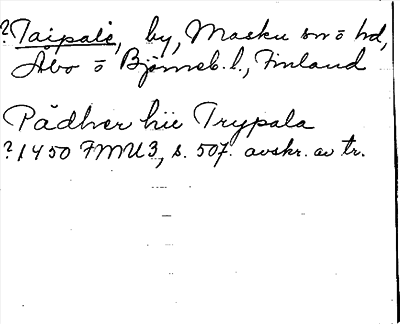 ?Taipale, by, Masku sn o hd,
Åbo o Björneb. l., Finland
Pädher hie Trypala
?1450 FMU3, s. 507. avskr. av tr.